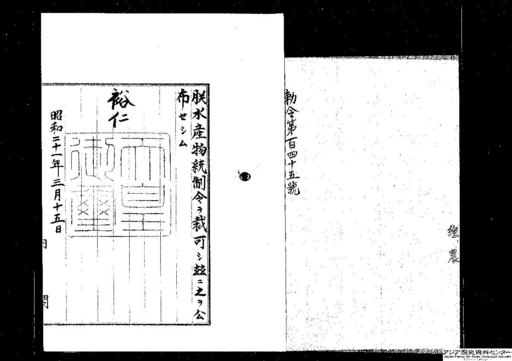 總農
勅令第百四十五號
朕水産物統制令ヲ裁可シ茲ニ之ヲ公
布セシム
裕仁
天皇
御璽
昭和二十一年三月十五日
内閣
アジア歴史資料センター